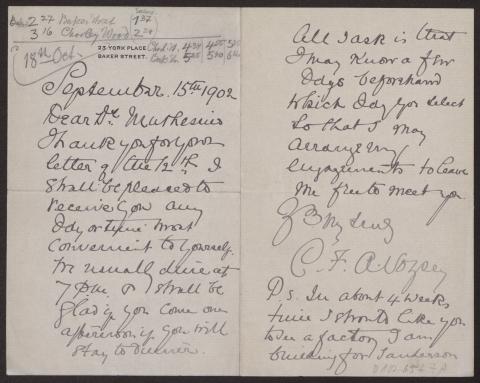 2 27 Baker Street 1 37
3 16 Chorley Wood 2 29
18th Oct
23 YORK PLACE
BAKER STREET.
September. 15th 1902
Dear Dr Muthesius
Thank you for your
letter of the 12th I
shall be pleased to
receive you any
day or time most
convenient to yourself.
We usually dine at
7 P.M. & I shall be
glad if you come one
afternoon if you will
stay to dinner.
All I ask is that
I may know a few
days beforehand
which day you select
so that I may
arrange my
engagements to leave
me free to meet you
C. F. A. Voysey
P.S. In about 4 weeks
time I should like you
to see a factory I am
building for Sanderson